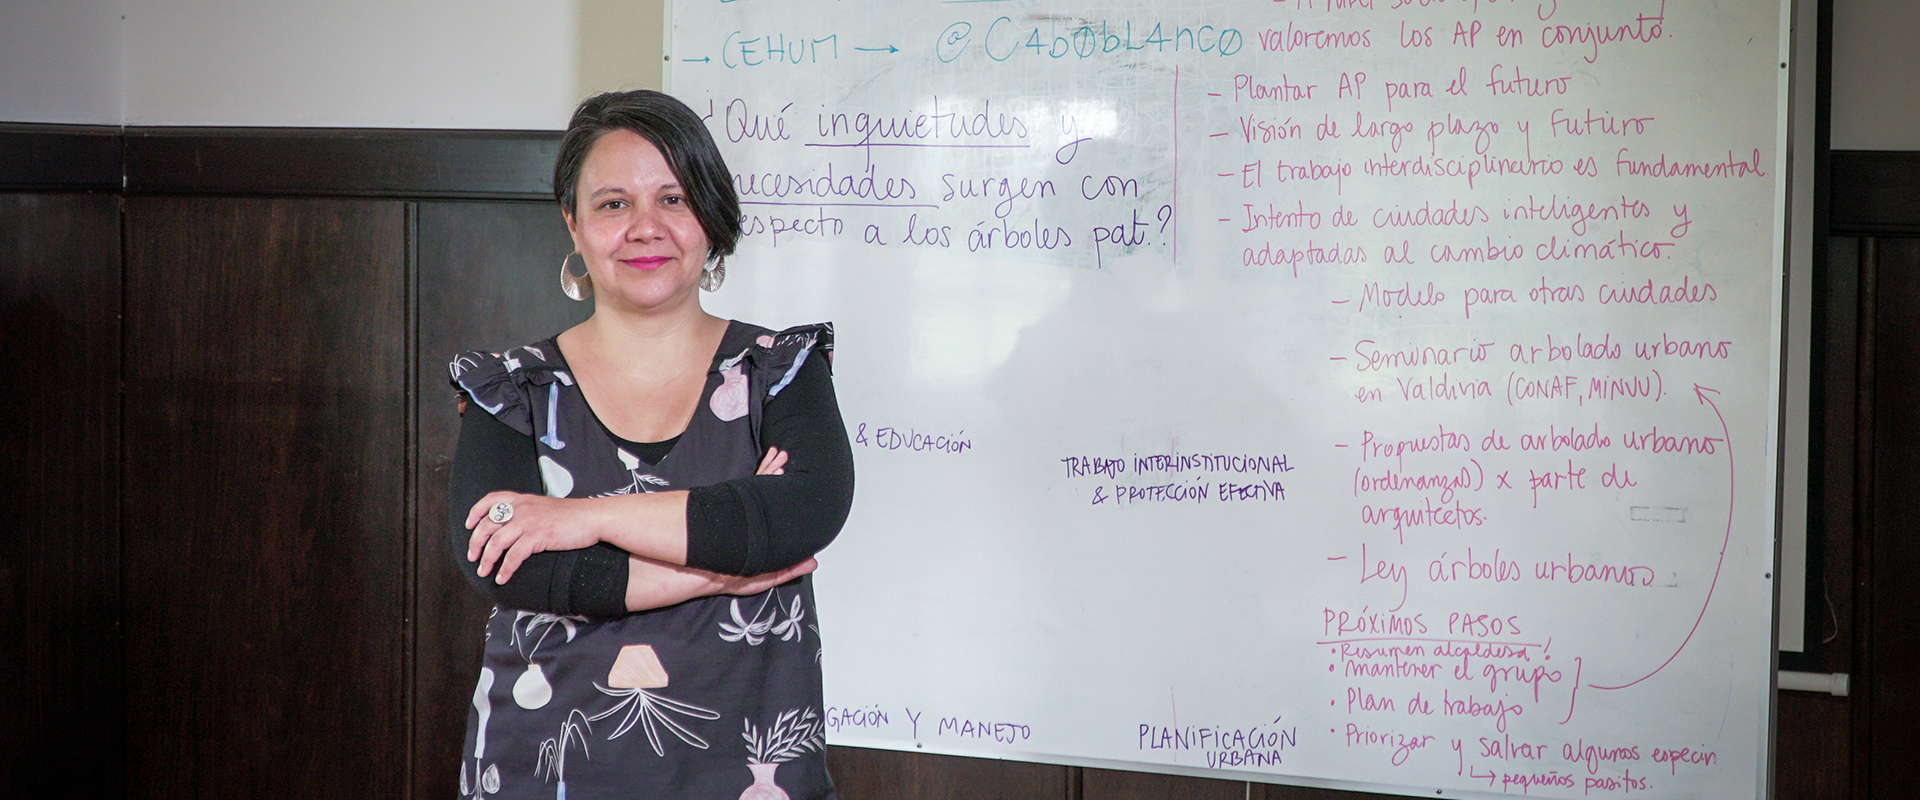 → CEHUM → @C4b0bL4nC0
¿Qué inquietudes y
necesidades surgen con
respecto a los árboles pat.?
& EDUCACIÓN
TRABAJO INTERINSTITUCIONAL
& PROTECCIÓN EFECTIVA
GACIÓN Y MANEJO
PLANIFICACIÓN
URBANA
valoremos los AP en conjunto.
- Plantar AP para el futuro
- Visión de largo plazo y futuro
- El trabajo interdisciplineario es fundamental.
- Intento de ciudades inteligentes y
adaptadas al cambio climático.
- Modelo para otras ciudades
- Seminario arbolado urbano
en Valdivia (CONAF, MINVU).
- Propuestas de arbolado urbano
(ordenanzas) x parte de
arquitectos.
- Ley árboles urbanos
PRÓXIMOS PASOS
• Resumen alcaldesa!
• mantener el grupo
• Plan de trabajo
• Priorizar y salvar algunos especin
↳ pequeños pasitos.